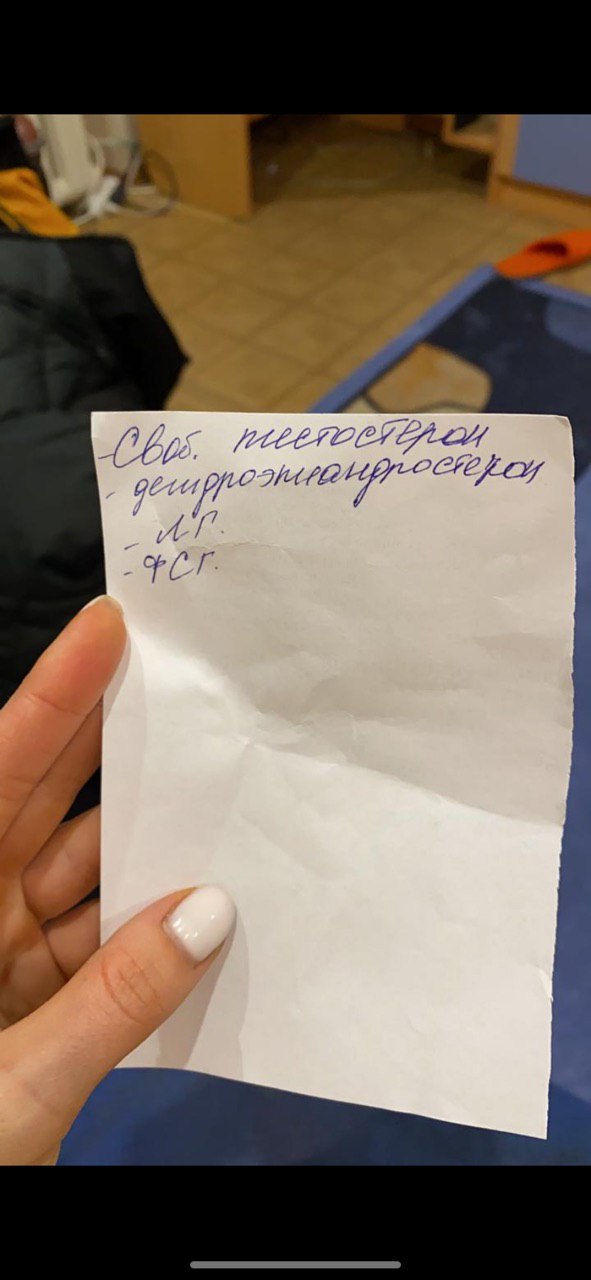 - Своб. тестостерон
- дегидроэпиандростерон
- ЛГ.
- ФСГ.